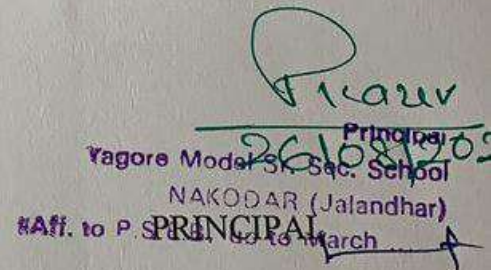 Principal
26/08/202
Tagore Model Sr. Sec. School
NAKODAR (Jalandhar)
Aff. to P.S.E.B. up to March
PRINCIPAL